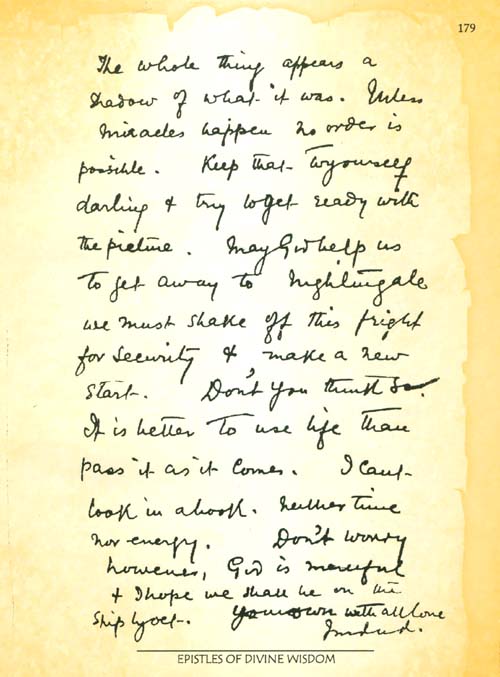 179
The whole thing appears a
shadow of what it was. Unless
miracles happen no order is
possible. Keep that to yourself
darling & try to get ready with
the picture. May God help us
to get away to Nightingale
we must shake off this fright
for security & make a new
start. Don't you think so.
It is better to use life than
pass it as it comes. I cant
look in a book. Neither time
nor energy. Don't worry
however, God is merciful
& I hope we shall be on the
ship by Oct. Your own with all love
EPISTLES OF DIVINE WISDOM